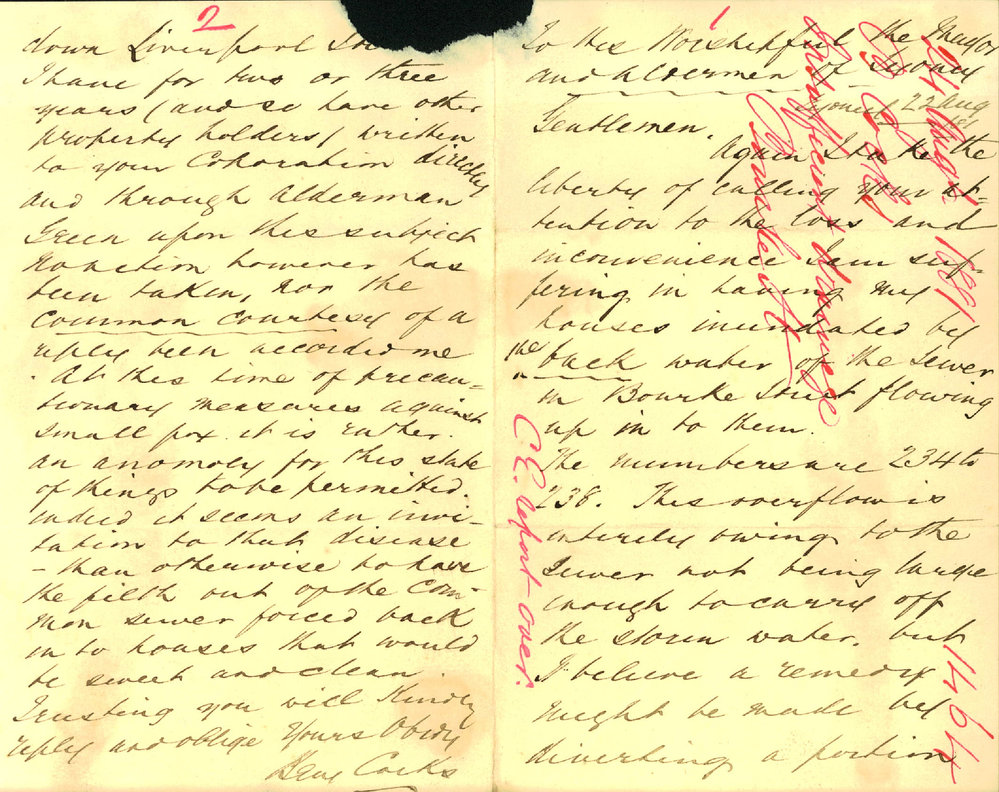 1
To the Worshipful the Mayor
and Aldermen of Sydney
Sydney 22 Aug
Gentlemen.
Again I take the
liberty of calling your at-
tention to the loss and
inconvenience I am suf-
fering in having my
houses inundated by
the back water of the Sewer
in Bourke Street flowing
up in to them.
The numbers are 234 to
238. This overflow is
entirely owing to the
Sewer not being large
enough to carry off
the storm water, but
I believe a remedy
might be made by
diverting a portion
2
down Liverpool
I have for two or three
years (and so have other
property holders) written
to your Corporation directly
and through Alderman
Green upon this subject
No action however has
been taken, nor the
common courtesy of a
reply been accorded me
. At this time of precau-
tionary measures against
small pox it is rather
an anomoly for this state
of things to be permitted.
indeed it seems an invi-
tation to that disease
- than otherwise to have
the filth out of the com-
mon sewer forced back
in to houses that would
be sweet and clean
Trusting you will Kindly
reply and oblige Yours Obdly
Benj Cocks
24 Augt 1881
B Cocks
Insufficient drainage
Bourke St
C.E. report over.
1464